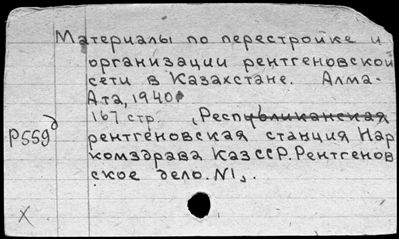 Материалы по перестройке и
организации рентгеновской
сети в Казахстане. Алма-
Ата, 1940
167 стр. , Республиканская
Р559д
рентгеновская станция Нар
комздрава КазССР. Рентгенов
ское дело. №1,.
X